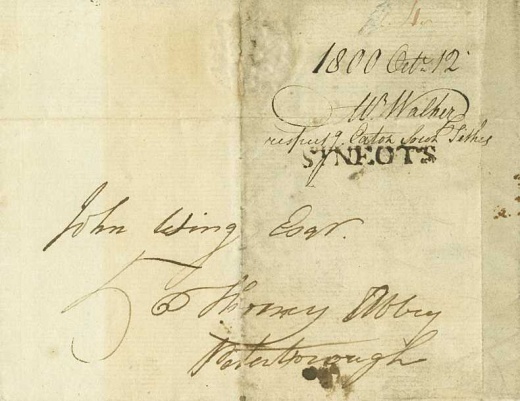 1800 Octr. 12
Wr. Walker
respectg. Eaton Socon Tithes
STNEOTS
John Wing Esqr.
5
Thorney Abbey
Peterborough